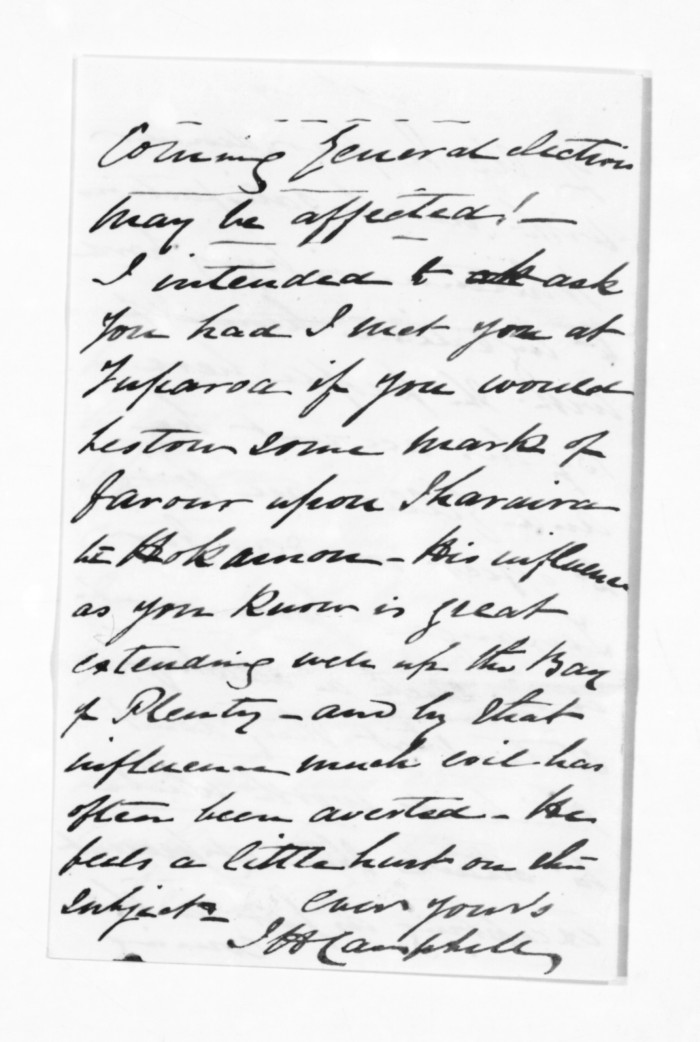 Coming General election
may be affected! —
I intended to ask
you had I met you at
Tuparoa if you would
bestow some mark of
favour upon Iharaira
te Hokamou - His influence
as you know is great
extending well up the Bay
of Plenty - and by that
influence much evil has
often been averted - He
feels a little hurt on this
subject ever yours
J H Campbell